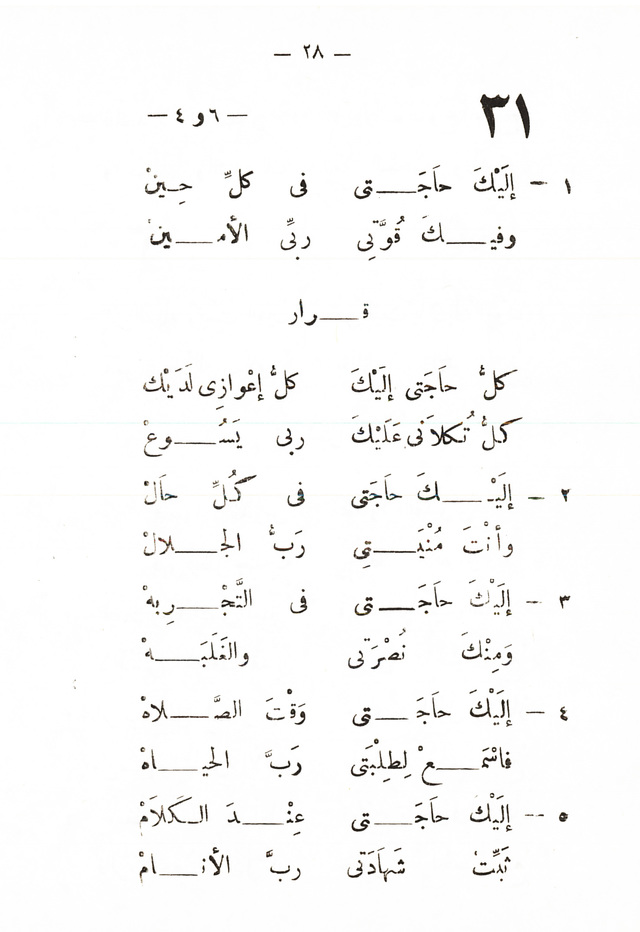 — ٢٨ —
٣١
— ٦ و ٤ —
١ – إِلَيْكَ حَاجَـــتى فى كلِّ حِـينْ
وفيـــكَ قُوَّتِي ربِّى الأمـــينْ
قـــرار
كلُّ حَاجَتى إلَيْكَ كلُّ إعْوازِى لَدَيْك
كلُّ تُكلاَنى عَلَيْكَ ربى يَسُـــوعْ
٢ – إِلَيْـــكَ حَاجَتى فى كُلِّ حَالْ
وأنْتَ مُنْيَـــتِي رَبُّ الجـــلالْ
٣ – إِلَيْكَ حَاجَـــتى فى التَّجْـــرِبهْ
وَمِنْكَ نُصْرَتى والغَلَبَـــهْ
٤ – إِلَيْكَ حَاجَـــتى وَقْتَ الصَّـــلاهْ
فاسْمَـــعْ لِطِلْبَتَى رَبَّ الحيـــاهْ
٥ – إِلَيْكَ حَاجَـــتى عِنْـــدَ الـكَلاَمْ
ثَبِّتْ شَهَادَتى ربَّ الأنـــامْ